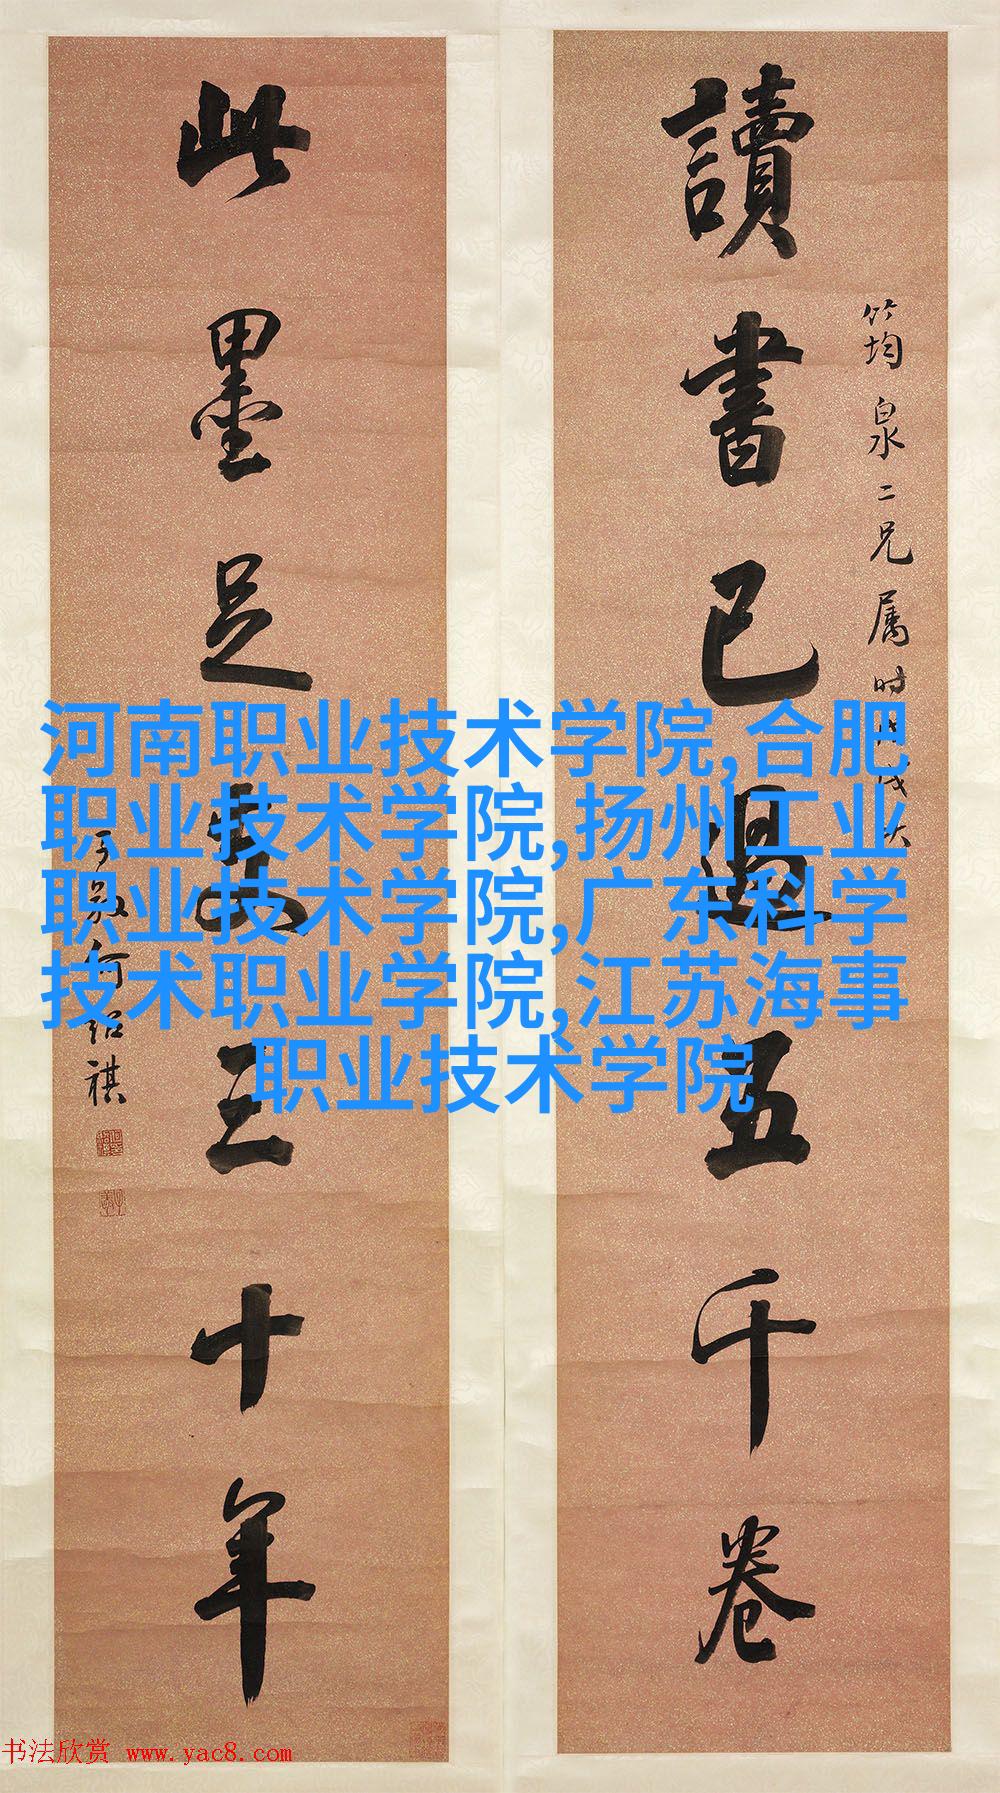 讀書已過五千卷
筠均泉二兄属时
此墨足支三十年
子敬何绍祺
河南职业技术学院,合肥
职业技术学院,扬州工业
职业技术学院,广东科学
技术职业学院,江苏海事
职业技术学院
书法欣赏 www.yac8.com